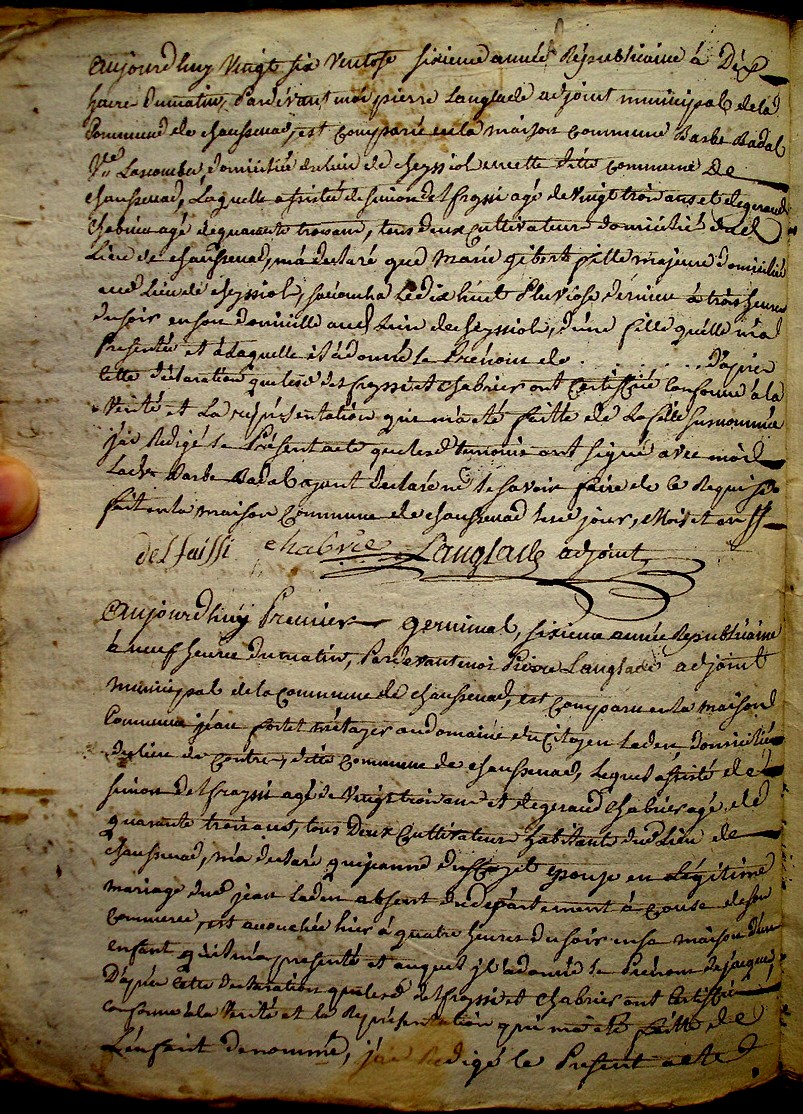 aujourdhuy vingt six ventose sixieme année Republicaine à Dix
heure dumatin, Pardevant moi pierre Langlade adjoint municipal dela
Commune de chaussenac, est Comparüe enla maison commune Barbe Badal
Ve Lacombe domiciliée dulieu de cheyssiol encette ditte commune de
chaussenac, Laquelle assistée de simon delfrayssi agé de vingt trois ans et degeraud
chabrier agé dequarante trois ans, tous deux Cultivateurs domiciliés dud
Lieu de chaussenac, ma declaré que marie gibert fille majeure domiciliée
aud Lieu de cheyssiol, accoucha Ledix huit Pluviose dernier à trois heures
dusoir en son domicille aud Lieu de cheyssiol, d'une fille qu'elle m'a
Presentée et à Laquelle il à donné le Prenom de . . . . . . . . d'apres
cette déclaration que lesd delfrayssi et chabrier ont Certiffié Conforme à la
verité et La representation qui m'a eté faitte de La fille surnommée
j'ai Redigé le Present acte que lesd temoins ont signé avec moi
Lade Barbe Badal ayant declaré ne le savoir faire de ce Requise
fait en la maison Commune de chaussenac les jour, mois et an
delfaissi chabrie Langlade adjoint
aujourdhuy Premier germinal, sixieme année Republicaine
à neuf heures dumatin, Pardevant moi Pierre Langlade adjoint
municipal dela Commune de chaussenac, est Comparu enla maison
Commune jean métayer audomaine du Citoyen laden, domicilié
dulieu de contre, ditte commune de chaussenac, Lequel assisté de
simon delfrayssi agé de vingt trois ans et degeraud chabrier agé de
quarante trois ans, tous Deux Cultivateurs habitants dud Lieu de
chaussenac, m'a declaré que jeanne epouse en Légitime
mariage dud jean laden absent dud departement à cause de son
commerce, est accouchée hier à quatre heures dusoir en sa maison d'un
enfant qu'il m'a presenté et auquel jl à donné le Prenom de jacques
D'après Cette declaration que lesd delfrayssi et chabrier ont Certiffié
conforme à la verité et la Representation qui m'a eté faitte de
L'enfant denommé, j'ai Redigé le Present acte